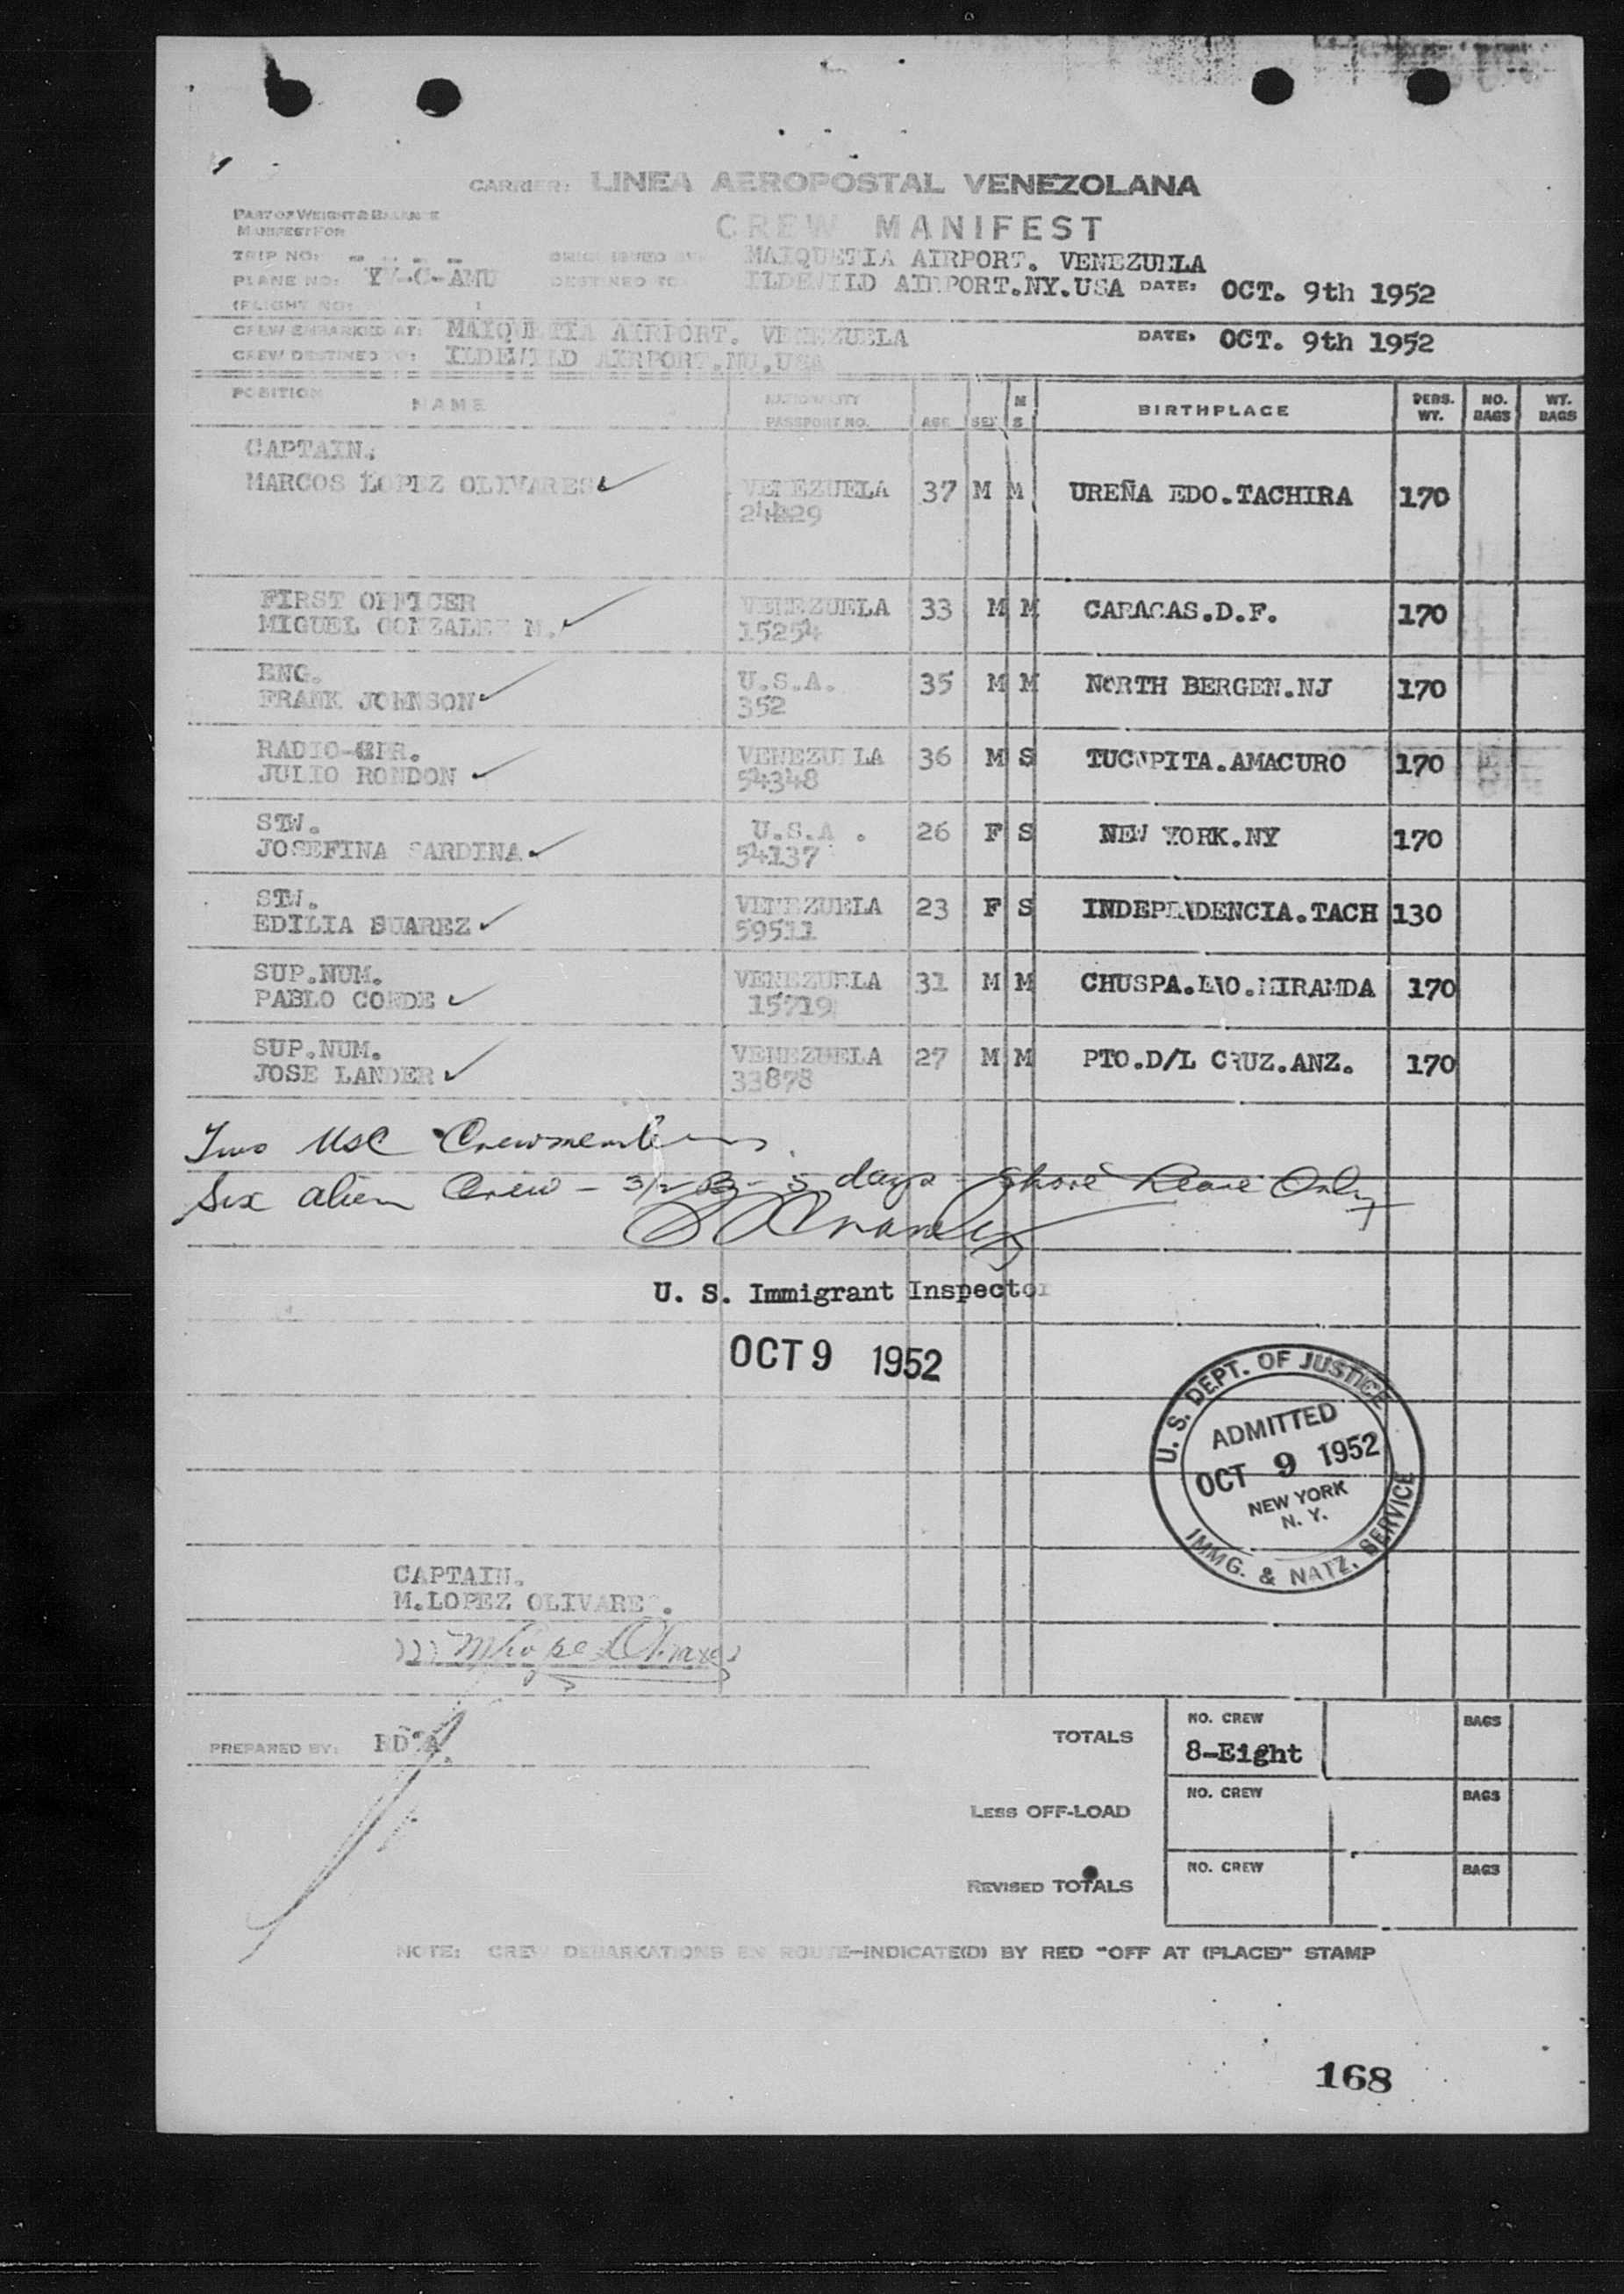 CARRIER: LINEA AEROPOSTAL VENEZOLANA
PART OF WEIGHT & BALANCE
MANIFEST FOR
CREW MANIFEST
TRIP NO:
MAIQUETIA AIRPORT. VENEZUELA
PLANE NO: YV-C-AMU DESTINED TO: ILDEWILD AIRPORT.NY.USA DATE: OCT. 9th 1952
(FLIGHT NO:
CREW EMBARKED AT: MAIQUETIA AIRPORT. VENEZUELA DATE: OCT. 9th 1952
CREW DESTINED TO: ILDEWILD AIRPORT.NU.USA
POSITION NAME NATIONALITY PASSPORT NO. AGE SEX M S BIRTHPLACE PERS. WT. NO. BAGS WT. BAGS
CAPTAIN.
MARCOS LOPEZ OLIVARES VENEZUELA 37 M M UREÑA EDO.TACHIRA 170
FIRST OFFICER VENEZUELA 33 M M CARACAS.D.F. 170
MIGUEL GONZALEZ M. 15254
ENG. U.S.A. 35 M M NORTH BERGEN.NJ 170
FRANK JOHNSON 352
RADIO-OPR. VENEZUELA 36 M S TUCUPITA.AMACURO 170
JULIO RONDON 54348
STW. U.S.A . 26 F S NEW YORK.NY 170
JOSEFINA SARDINA 54137
STW. VENEZUELA 23 F S INDEPENDENCIA.TACH 130
EDILIA SUAREZ 59511
SUP.NUM. VENEZUELA 31 M M CHUSPA.EDO.MIRAMDA 170
PABLO CONDE 15719
SUP.NUM. VENEZUELA 27 M M PTO.D/L CRUZ.ANZ. 170
JOSE LANDER 33878
Two USC Crewmembers
Six alien Crew - 3/2 B - 5 days - Shore Leave Only
U. S. Immigrant Inspector
OCT 9 1952
U. S. DEPT. OF JUSTICE
ADMITTED
OCT 9 1952
NEW YORK
N. Y.
IMMG. & NATZ. SERVICE
CAPTAIN.
M.LOPEZ OLIVARES.
M Lopez Olivares
PREPARED BY:
TOTALS NO. CREW 8-Eight BAGS
LESS OFF-LOAD NO. CREW BAGS
REVISED TOTALS NO. CREW BAGS
NOTE: CREW DEBARKATIONS EN ROUTE-INDICATE(D) BY RED "OFF AT (PLACE)" STAMP
168